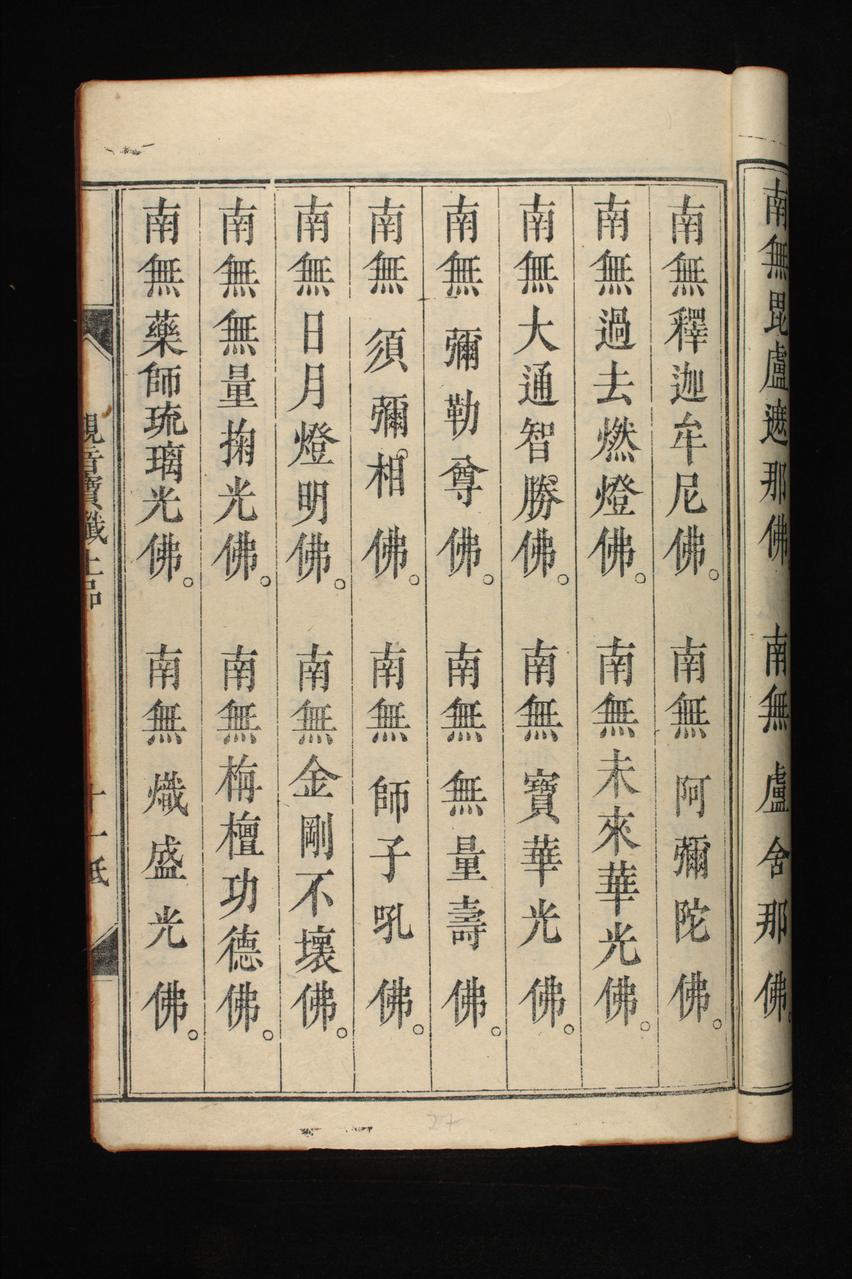 南無毘盧遮那佛　南無盧舍那佛。
南無釋迦牟尼佛。南無阿彌陀佛。
南無過去燃燈佛。南無未來華光佛。
南無大通智勝佛。南無寶華光佛。
南無彌勒尊佛。南無無量壽佛。
南無須彌相佛。南無師子吼佛。
南無日月燈明佛。南無金剛不壞佛。
南無無量掬光佛。南無栴檀功德佛。
南無藥師琉璃光佛。南無熾盛光佛。
觀音寶懺上品　十一紙